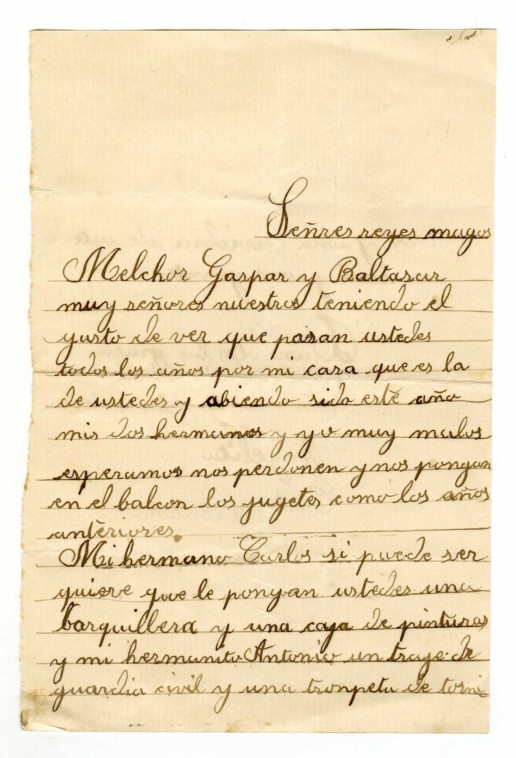 Señres reyes magos
Melchor Gaspar y Baltasar
muy señores nuestros teniendo el
gusto de ver que pasan ustedes
todos los años por mi casa que es la
de ustedes y abiendo sido este año
mis dos hermanos y yo muy malos
esperamos nos perdonen y nos pongan
en el balcon los jugetes como los años
anteriores.
Mi hermano Carlos si puede ser
quiere que le pongan ustedes una
barquillera y una caja de pinturas
y mi hermanito Antonio un traje de
guardia civil y una tronpeta de torni